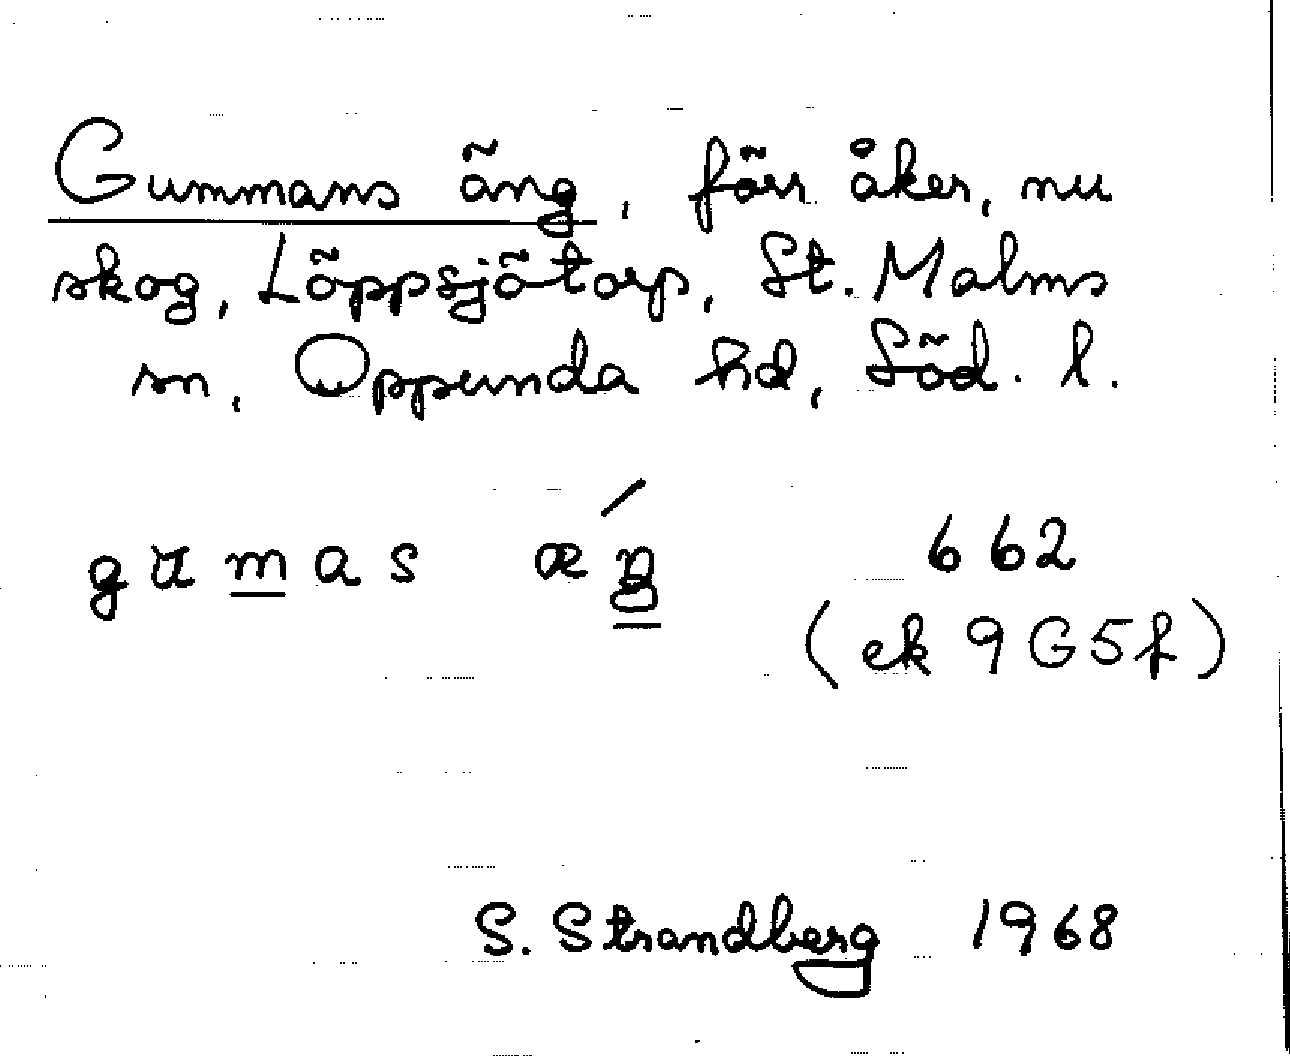 Gummans äng, förr åker, nu
skog, Löppsjötorp, St. Malms
sn, Oppunda hd, Söd. l.
gumas æŋ́ 662
(ek 9G5f)
S. Strandberg 1968